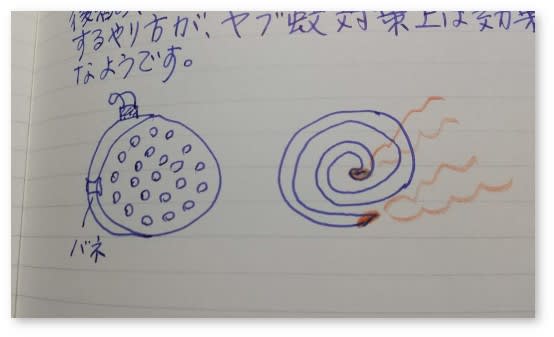 するやり方が、ヤブ蚊対策上は効果
なようです。
バネ